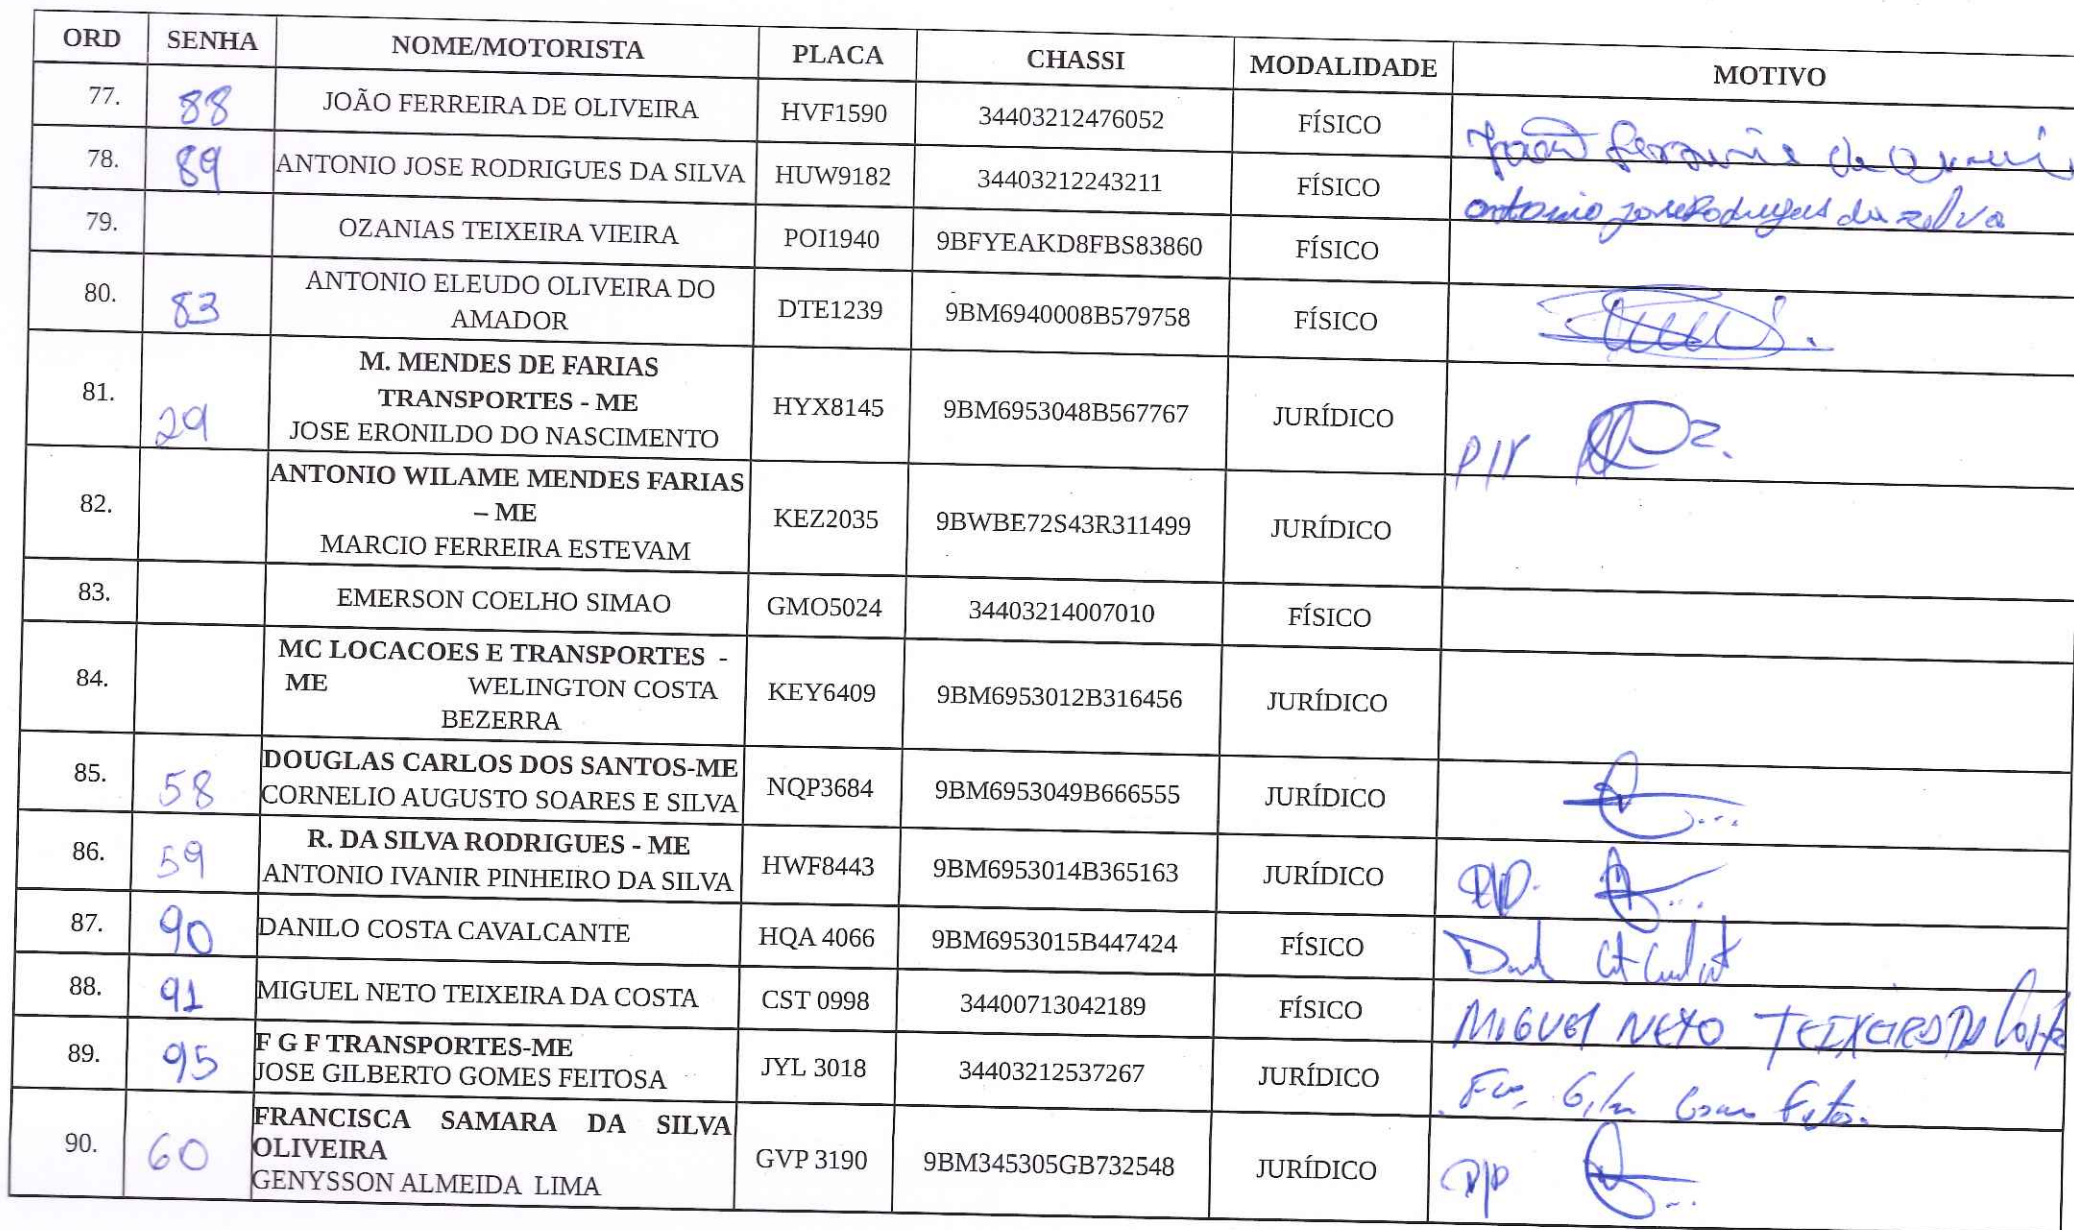 ORD SENHA NOME/MOTORISTA PLACA CHASSI MODALIDADE MOTIVO
77. 88 JOÃO FERREIRA DE OLIVEIRA HVF1590 34403212476052 FÍSICO João
78. 89 ANTONIO JOSE RODRIGUES DA SILVA HUW9182 34403212243211 FÍSICO antonio jose Rodrigues da zilva
79. OZANIAS TEIXEIRA VIEIRA POI1940 9BFYEAKD8FBS83860 FÍSICO
80. 83 ANTONIO ELEUDO OLIVEIRA DO
AMADOR DTE1239 9BM6940008B579758 FÍSICO
81. 29 M. MENDES DE FARIAS
TRANSPORTES - ME
JOSE ERONILDO DO NASCIMENTO HYX8145 9BM6953048B567767 JURÍDICO
82. ANTONIO WILAME MENDES FARIAS
– ME
MARCIO FERREIRA ESTEVAM KEZ2035 9BWBE72S43R311499 JURÍDICO
83. EMERSON COELHO SIMAO GMO5024 34403214007010 FÍSICO
84. MC LOCACOES E TRANSPORTES -
ME WELINGTON COSTA
BEZERRA KEY6409 9BM6953012B316456 JURÍDICO
85. 58 DOUGLAS CARLOS DOS SANTOS-ME
CORNELIO AUGUSTO SOARES E SILVA NQP3684 9BM6953049B666555 JURÍDICO
86. 59 R. DA SILVA RODRIGUES - ME
ANTONIO IVANIR PINHEIRO DA SILVA HWF8443 9BM6953014B365163 JURÍDICO
87. 90 DANILO COSTA CAVALCANTE HQA 4066 9BM6953015B447424 FÍSICO
88. 91 MIGUEL NETO TEIXEIRA DA COSTA CST 0998 34400713042189 FÍSICO MIGUEL NETO TEIXEIRA DA Costa
89. 95 F G F TRANSPORTES-ME
JOSE GILBERTO GOMES FEITOSA JYL 3018 34403212537267 JURÍDICO
90. 60 FRANCISCA SAMARA DA SILVA
OLIVEIRA
GENYSSON ALMEIDA LIMA GVP 3190 9BM345305GB732548 JURÍDICO P/P